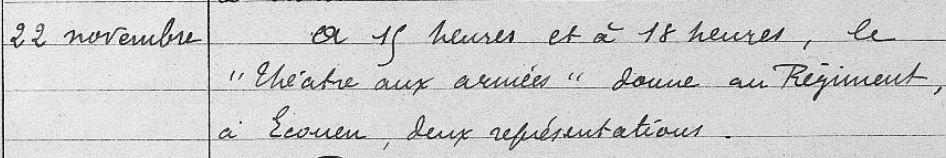 22 novembre A 15 heures et à 18 heures, le
"Théatre aux armées" donne au Régiment,
à Ecouen, deux représentations.